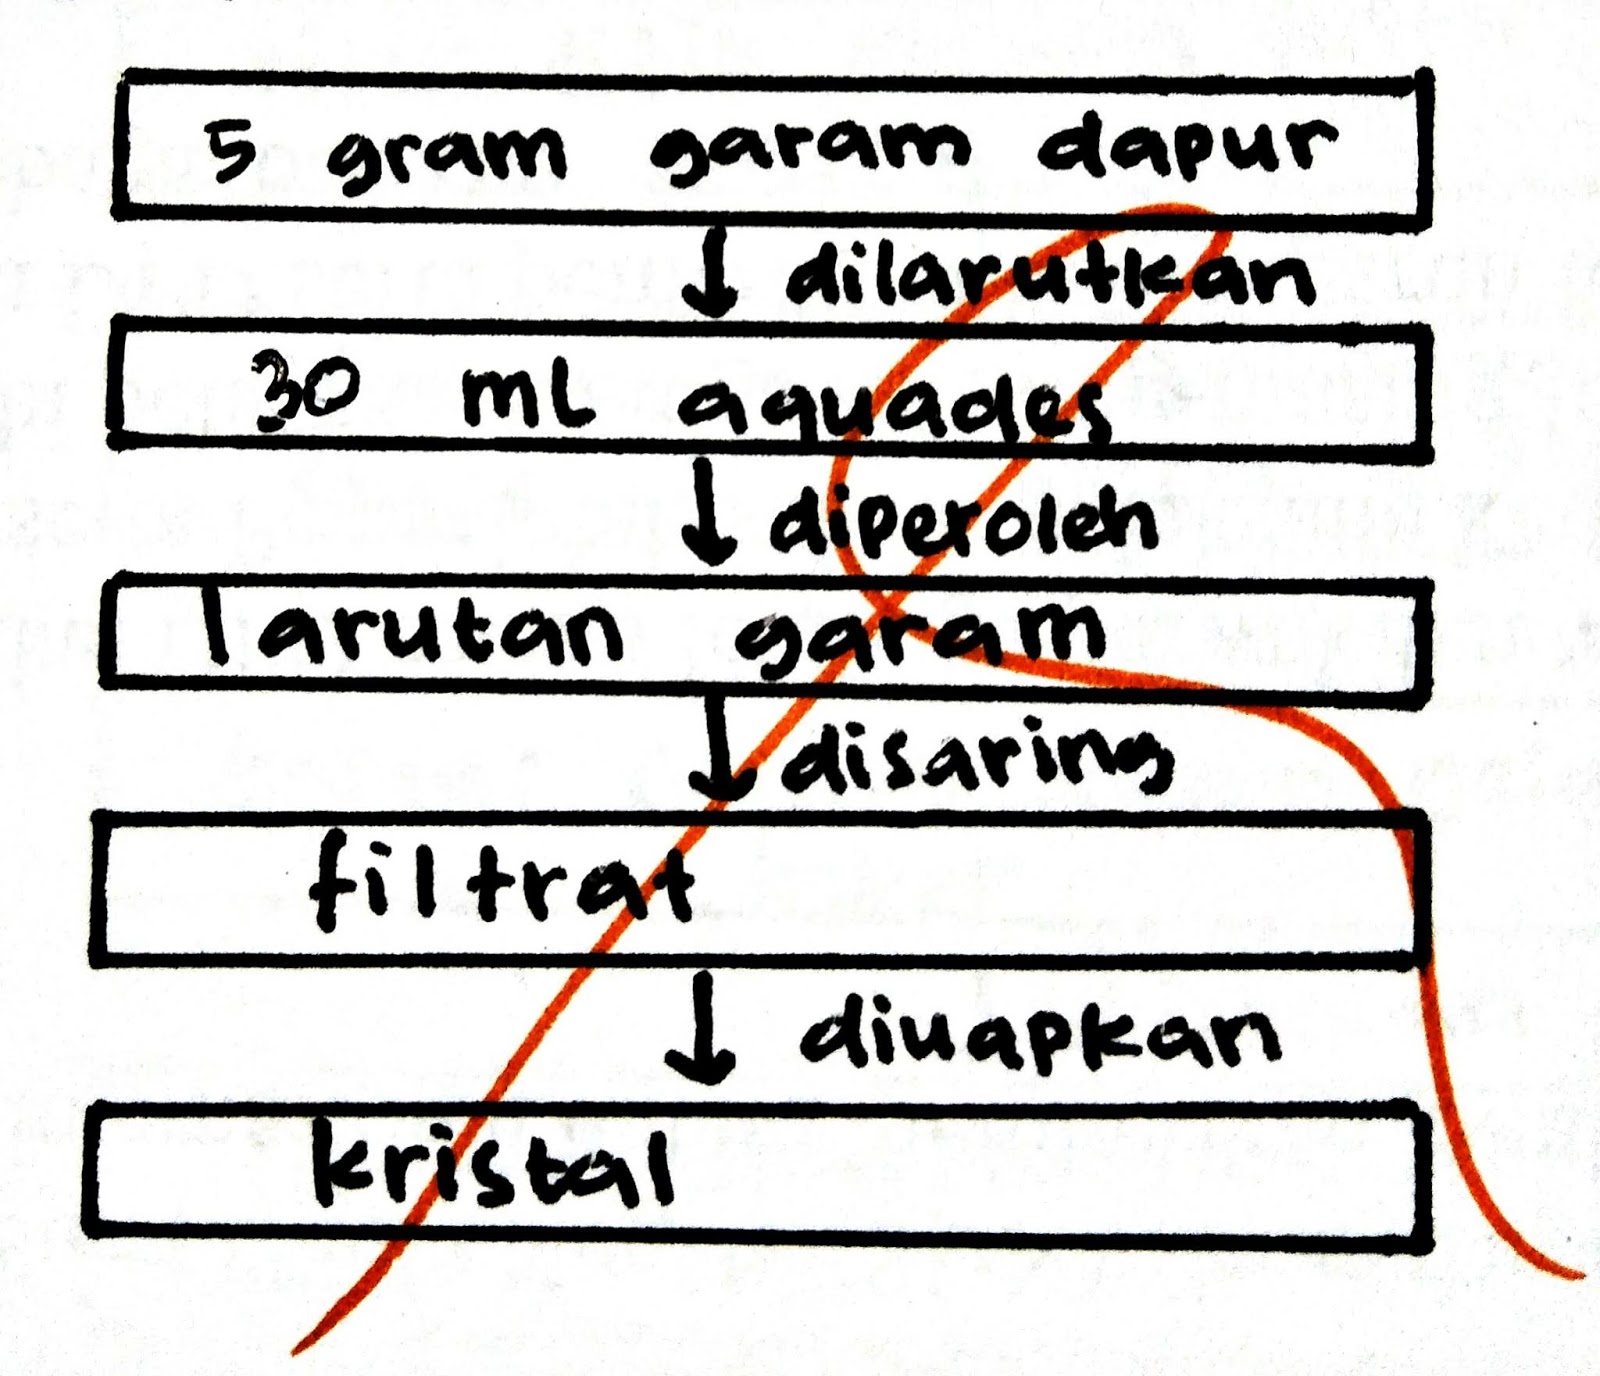 5 gram garam dapur
dilarutkan
30 ml aquades
diperoleh
larutan garam
disaring
filtrat
diuapkan
kristal